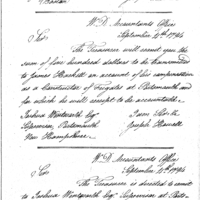 W.D. Accountants Office
September 4th 1794
Sir,
The Treasurer will remit you the
sum of five hundred dollars to be transmitted
to James Hackett on account of his compensation
as a Constructor of Frigates at Portsmouth and
for which he will be accountable.
Joshua Wentworth Esq
Supervisor, Portsmouth
New Hampshire
I am Sir &c
Joseph Howell
W.D. Accountants Office
September 4th 1794
Sir,
The Treasurer is directed to remit
to Joshua Wentworth Esqr Supervisor at Ports-